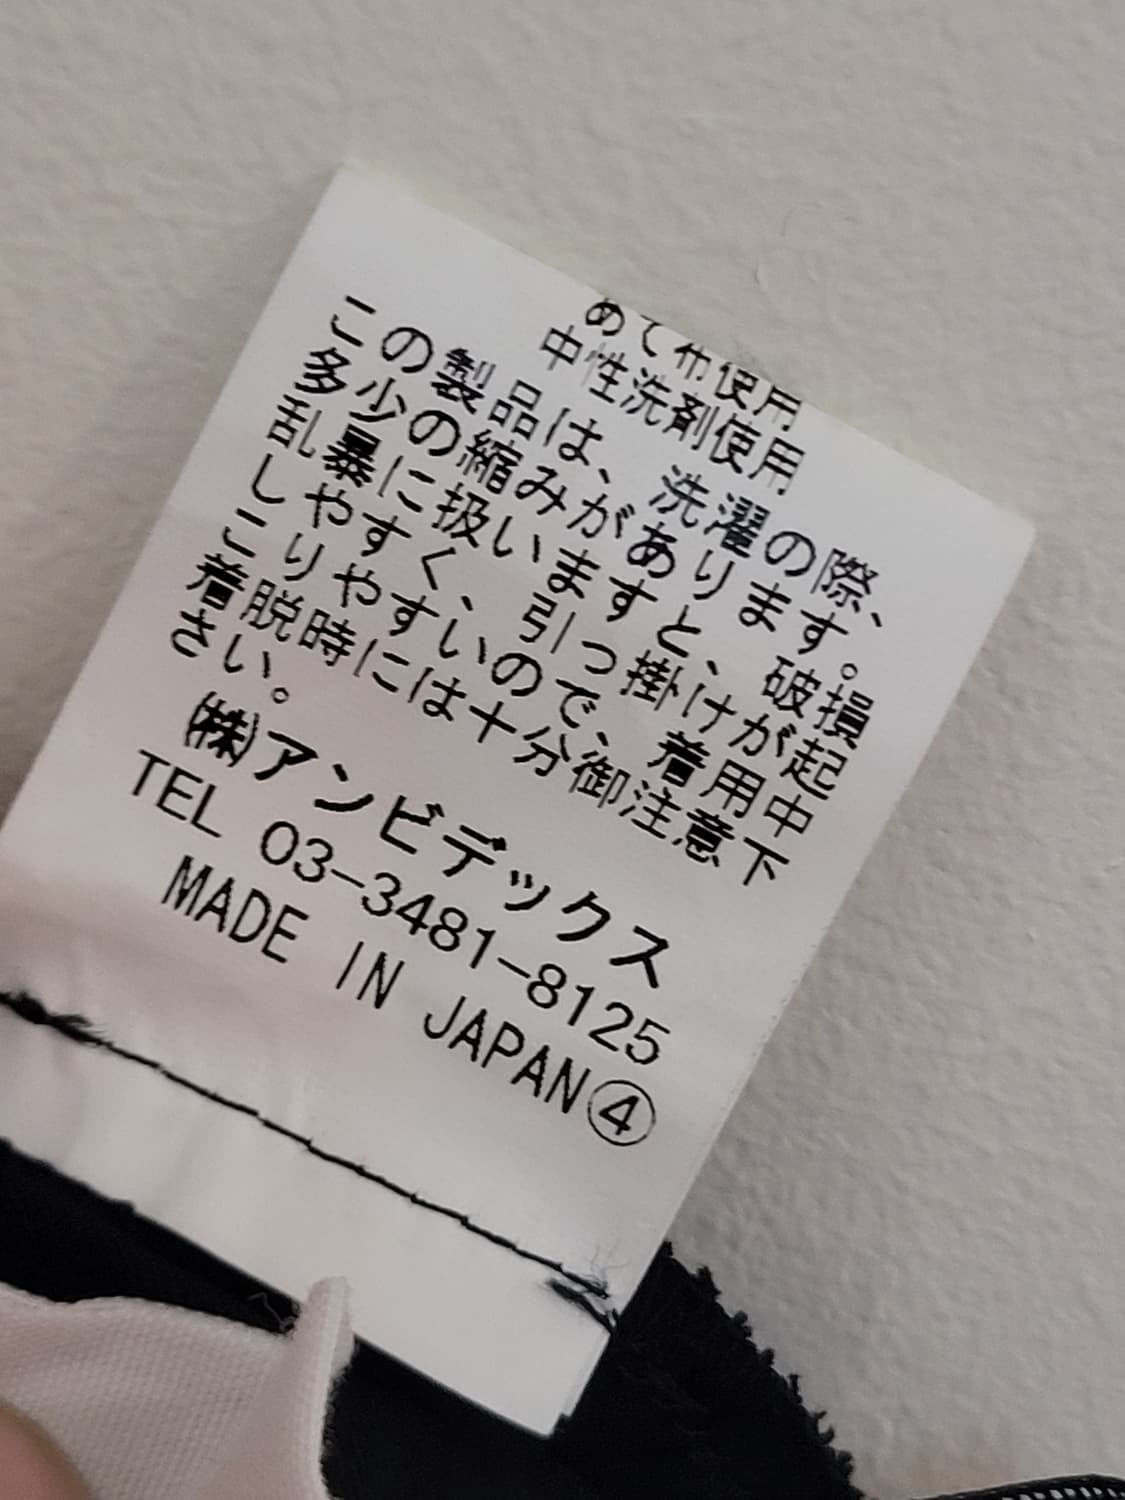 めて布使用
中性洗剤使用
この製品は、洗濯の際、
多少の縮みがあります。
乱暴に扱いますと、破損
しやすく、引っ掛けが起
こりやすいので、着用中
着脱時には十分御注意下
さい。
㈱アンビデックス
TEL 03-3481-8125
MADE IN JAPAN④